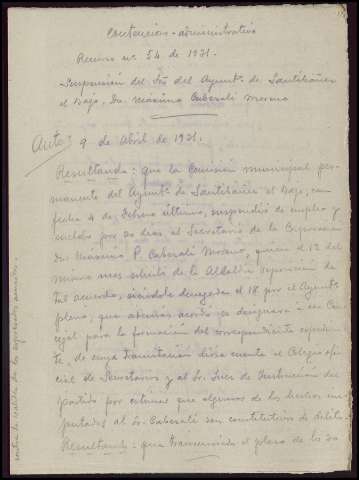 Contencioso-administrativo
Recurso nº 54 de 1931.
Suspensión del Srio del Ayuntº de Santibáñez
el Bajo, Dn Máximo Caberali Moreno
Auto: 9 de Abril de 1931.
Resultando: que la Comisión municipal per-
manente del Ayuntº de Santibáñez el Bajo, con
fecha 4 de Febrero último, suspendió de empleo y
sueldo por 30 días al Secretario de la Corporación
Dn Máximo P. Caberali Moreno, quien el 12 del
mismo mes solicitó de la Alcaldía reposición de
tal acuerdo, siéndole denegada el 18 por el Ayuntº
pleno, que además acordó se designara un Con-
cejal para la formación del correspondiente expedien-
te, de cuya tramitación diera cuenta al Colegio ofi-
cial de Secretarios y al Sr. Juez de Instrucción del
partido por estimar que algunos de los hechos im-
putados al Sr. Caberali son constitutivos de delito.
Resultando: que transcurrido el plazo de los 30
contra la validez de los expresados acuerdos.